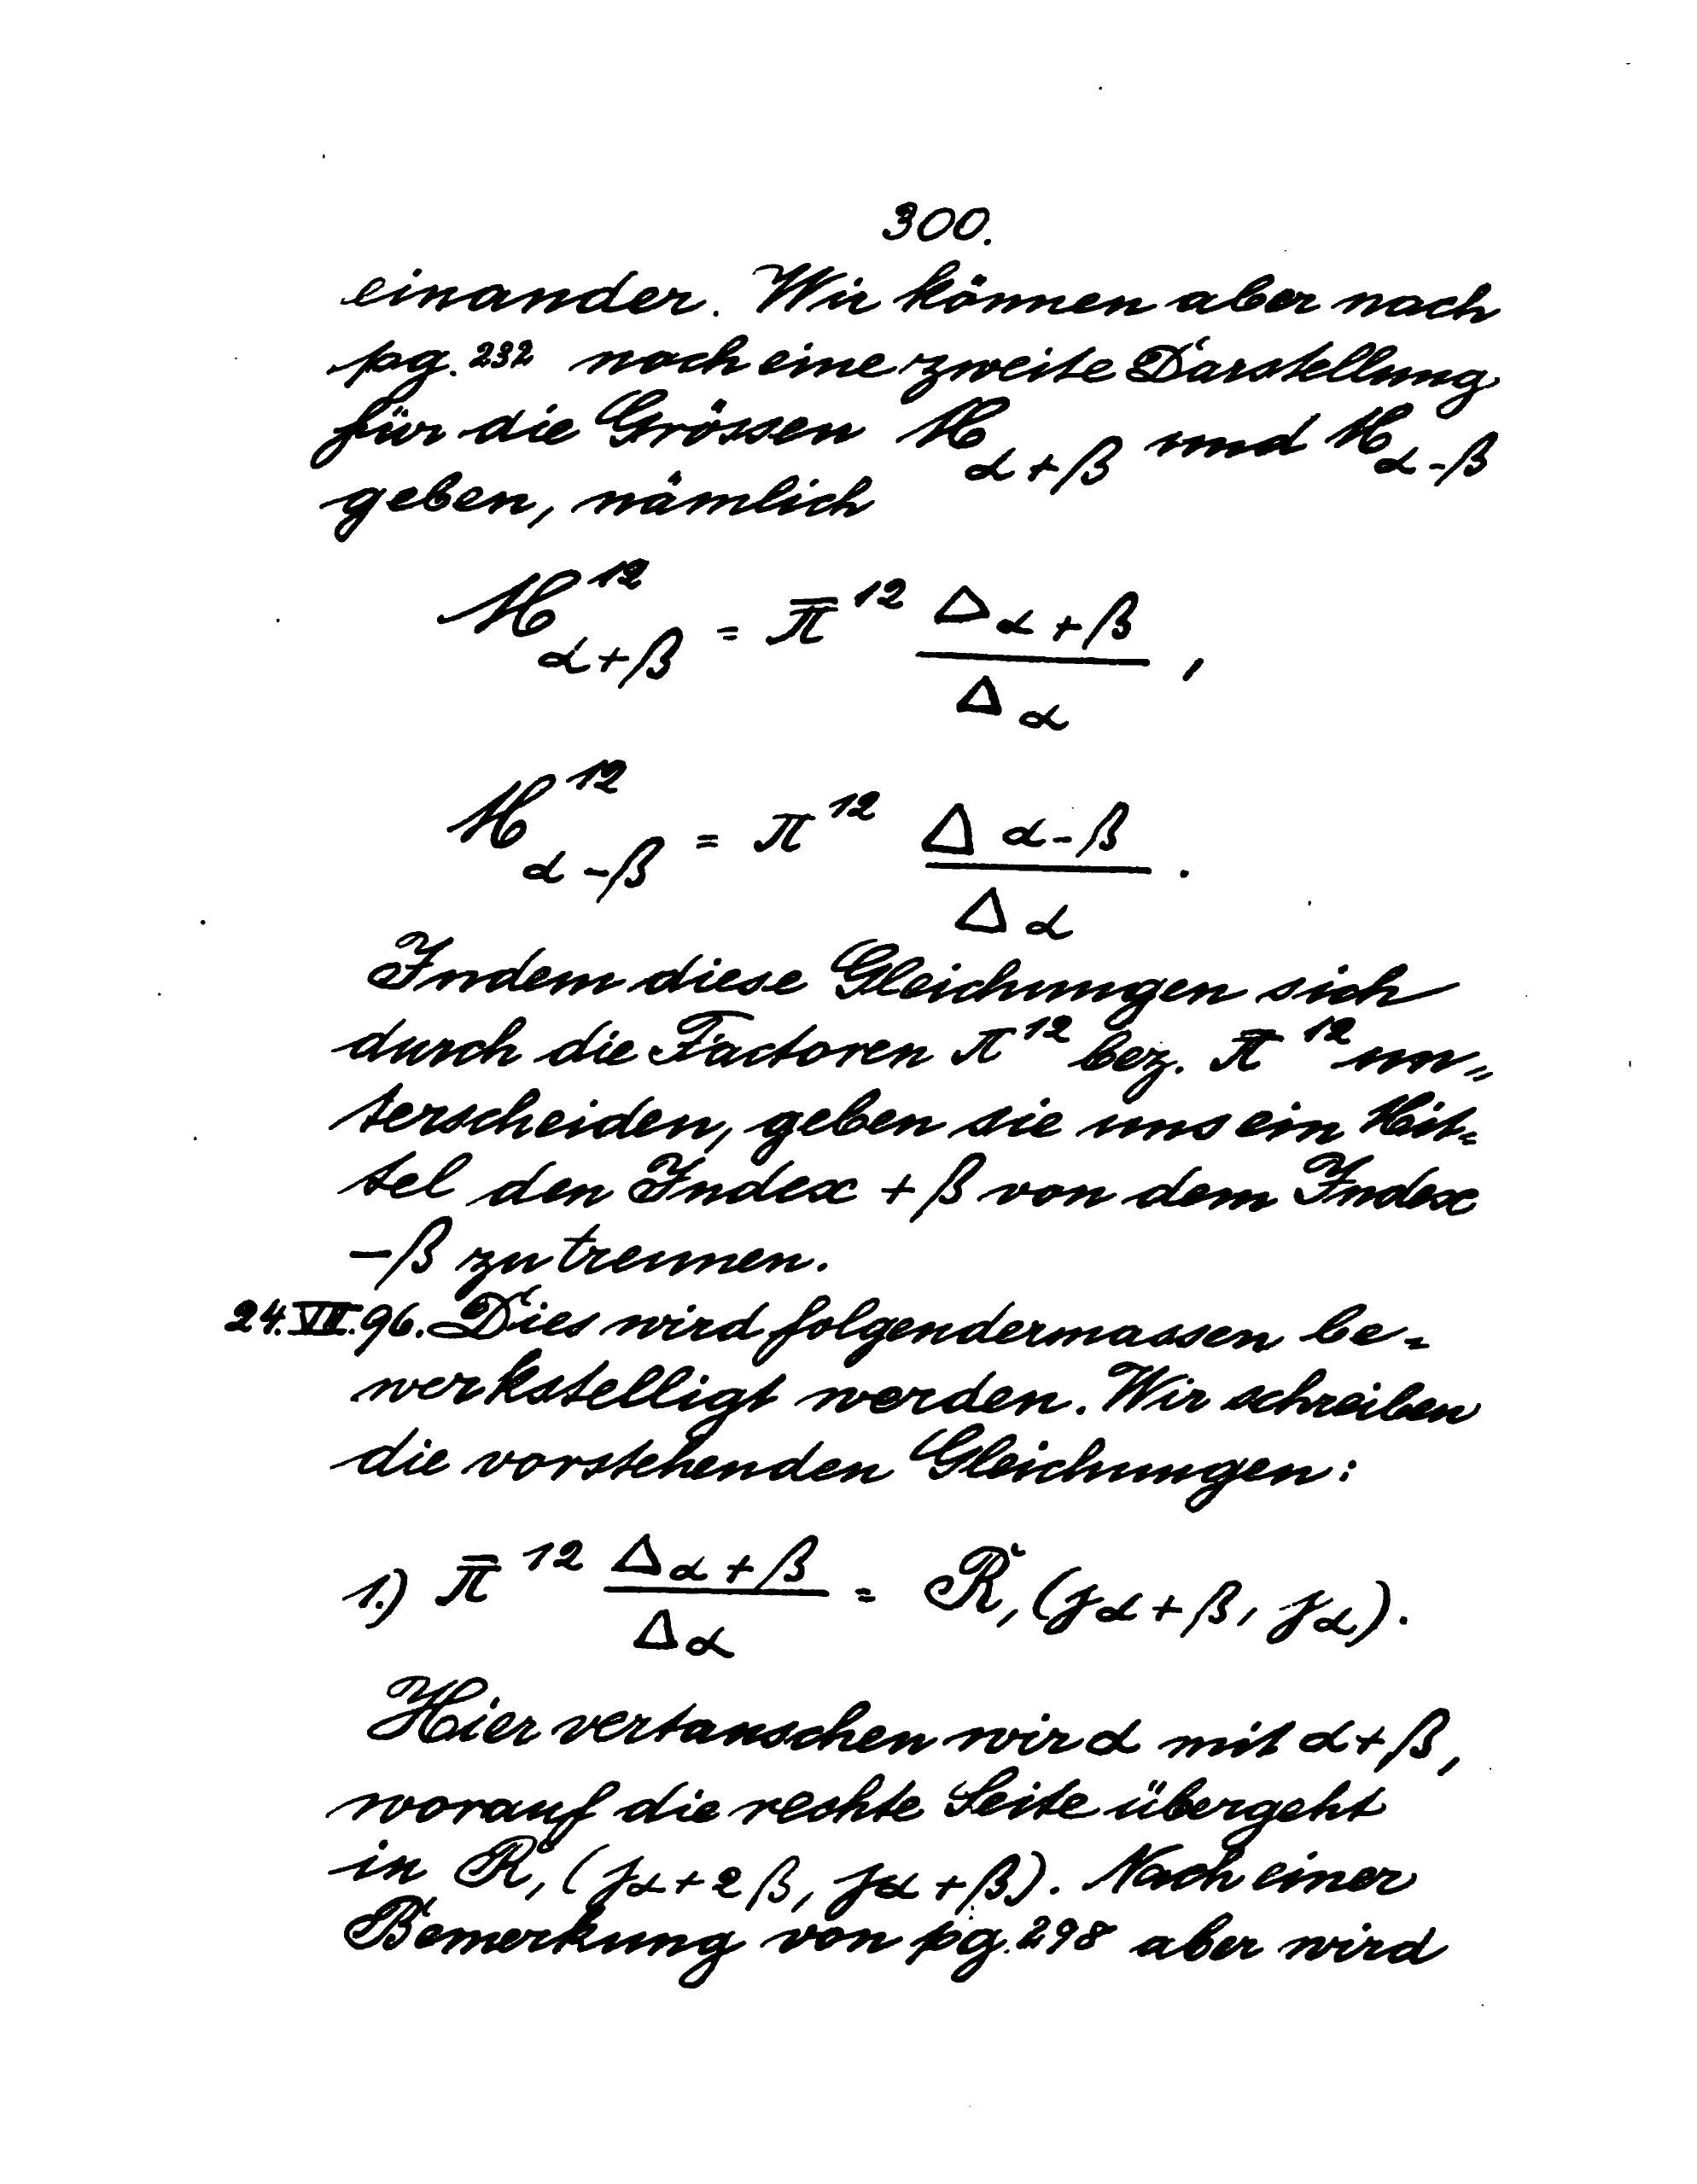 300.
einander. Wir können aber nach
pg. 232 noch eine zweite Darstellung
für die Grössen M_{α+β} und M_{α-β}
geben, nämlich
M^{12}_{α+β} = \bar{π}^{12} \frac{Δ_{α+β}}{Δ_α},
M^{12}_{α-β} = π^{12} \frac{Δ_{α-β}}{Δ_α}.
Indem diese Gleichungen sich
durch die Factoren π^{12} bez. \bar{π}^{12} un=
terscheiden, geben sie uns ein Mit=
tel den Index +β von dem Index
-β zu trennen.
24.VII.96. Dies wird folgendermassen be=
werkstelligt werden. Wir schreiben
die vorstehenden Gleichungen:
1.) \bar{π}^{12} \frac{Δ_{α+β}}{Δ_α} = R_1(j_{α+β}, j_α).
Hier vertauschen wir α mit α+β,
worauf die rechte Seite übergeht
in R_1(j_{α+2β}, j_{α+β}). Nach einer
Bemerkung von pg. 298 aber wird